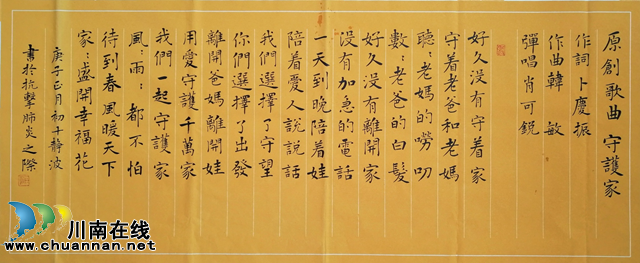 原創歌曲 守護家
作詞卜慶振
作曲韓 敏
彈唱肖可銳
好久沒有守着家
守着老爸和老媽
聽:老媽的嘮叨
數:老爸的白髮
好久沒有離開家
沒有加急的電話
一天到晚陪着娃
陪着愛人說說話
我們選擇了守望
你們選擇了出發
離開爸媽離開娃
用愛守護千萬家
我們一起守護家
風:雨:都不怕
待到春風暖天下
家:盛開幸福花
庚子正月初十靜波
書於抗擊肺炎之際
川南在线
www.chuannan.net